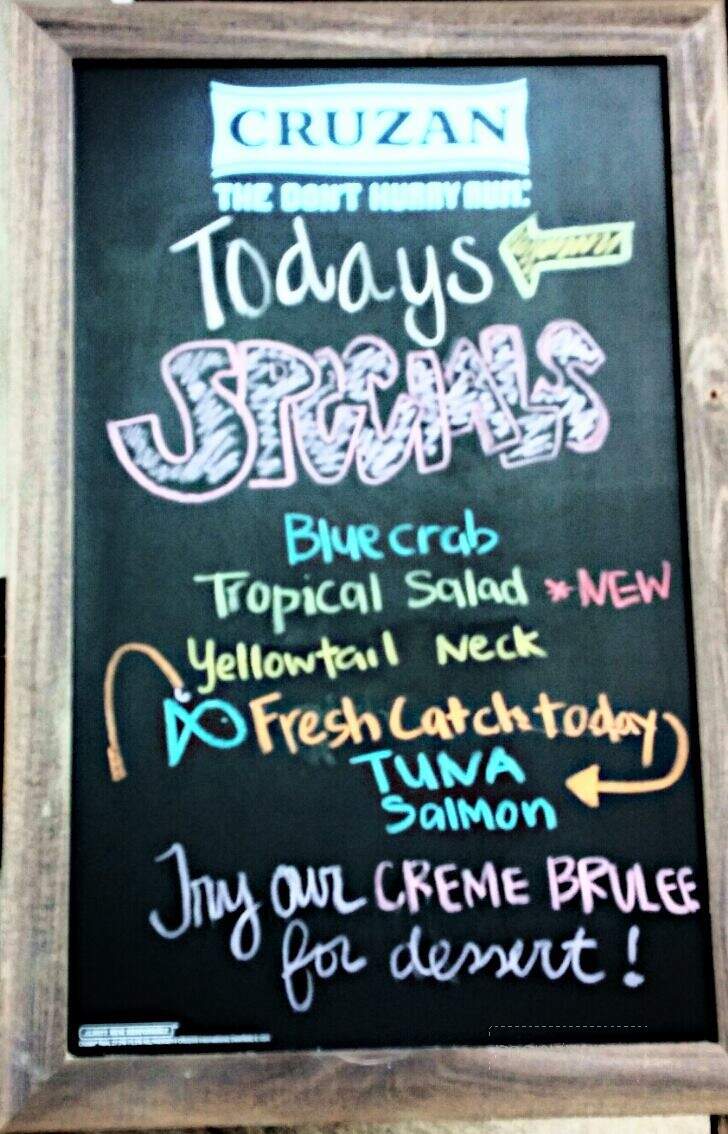 CRUZAN
THE DON'T HURRY RUM.
Todays
SPECIALS
Blue crab
Tropical Salad *NEW
Yellowtail Neck
Fresh Catch today
TUNA
Salmon
Try our CREME BRULEE
for dessert!